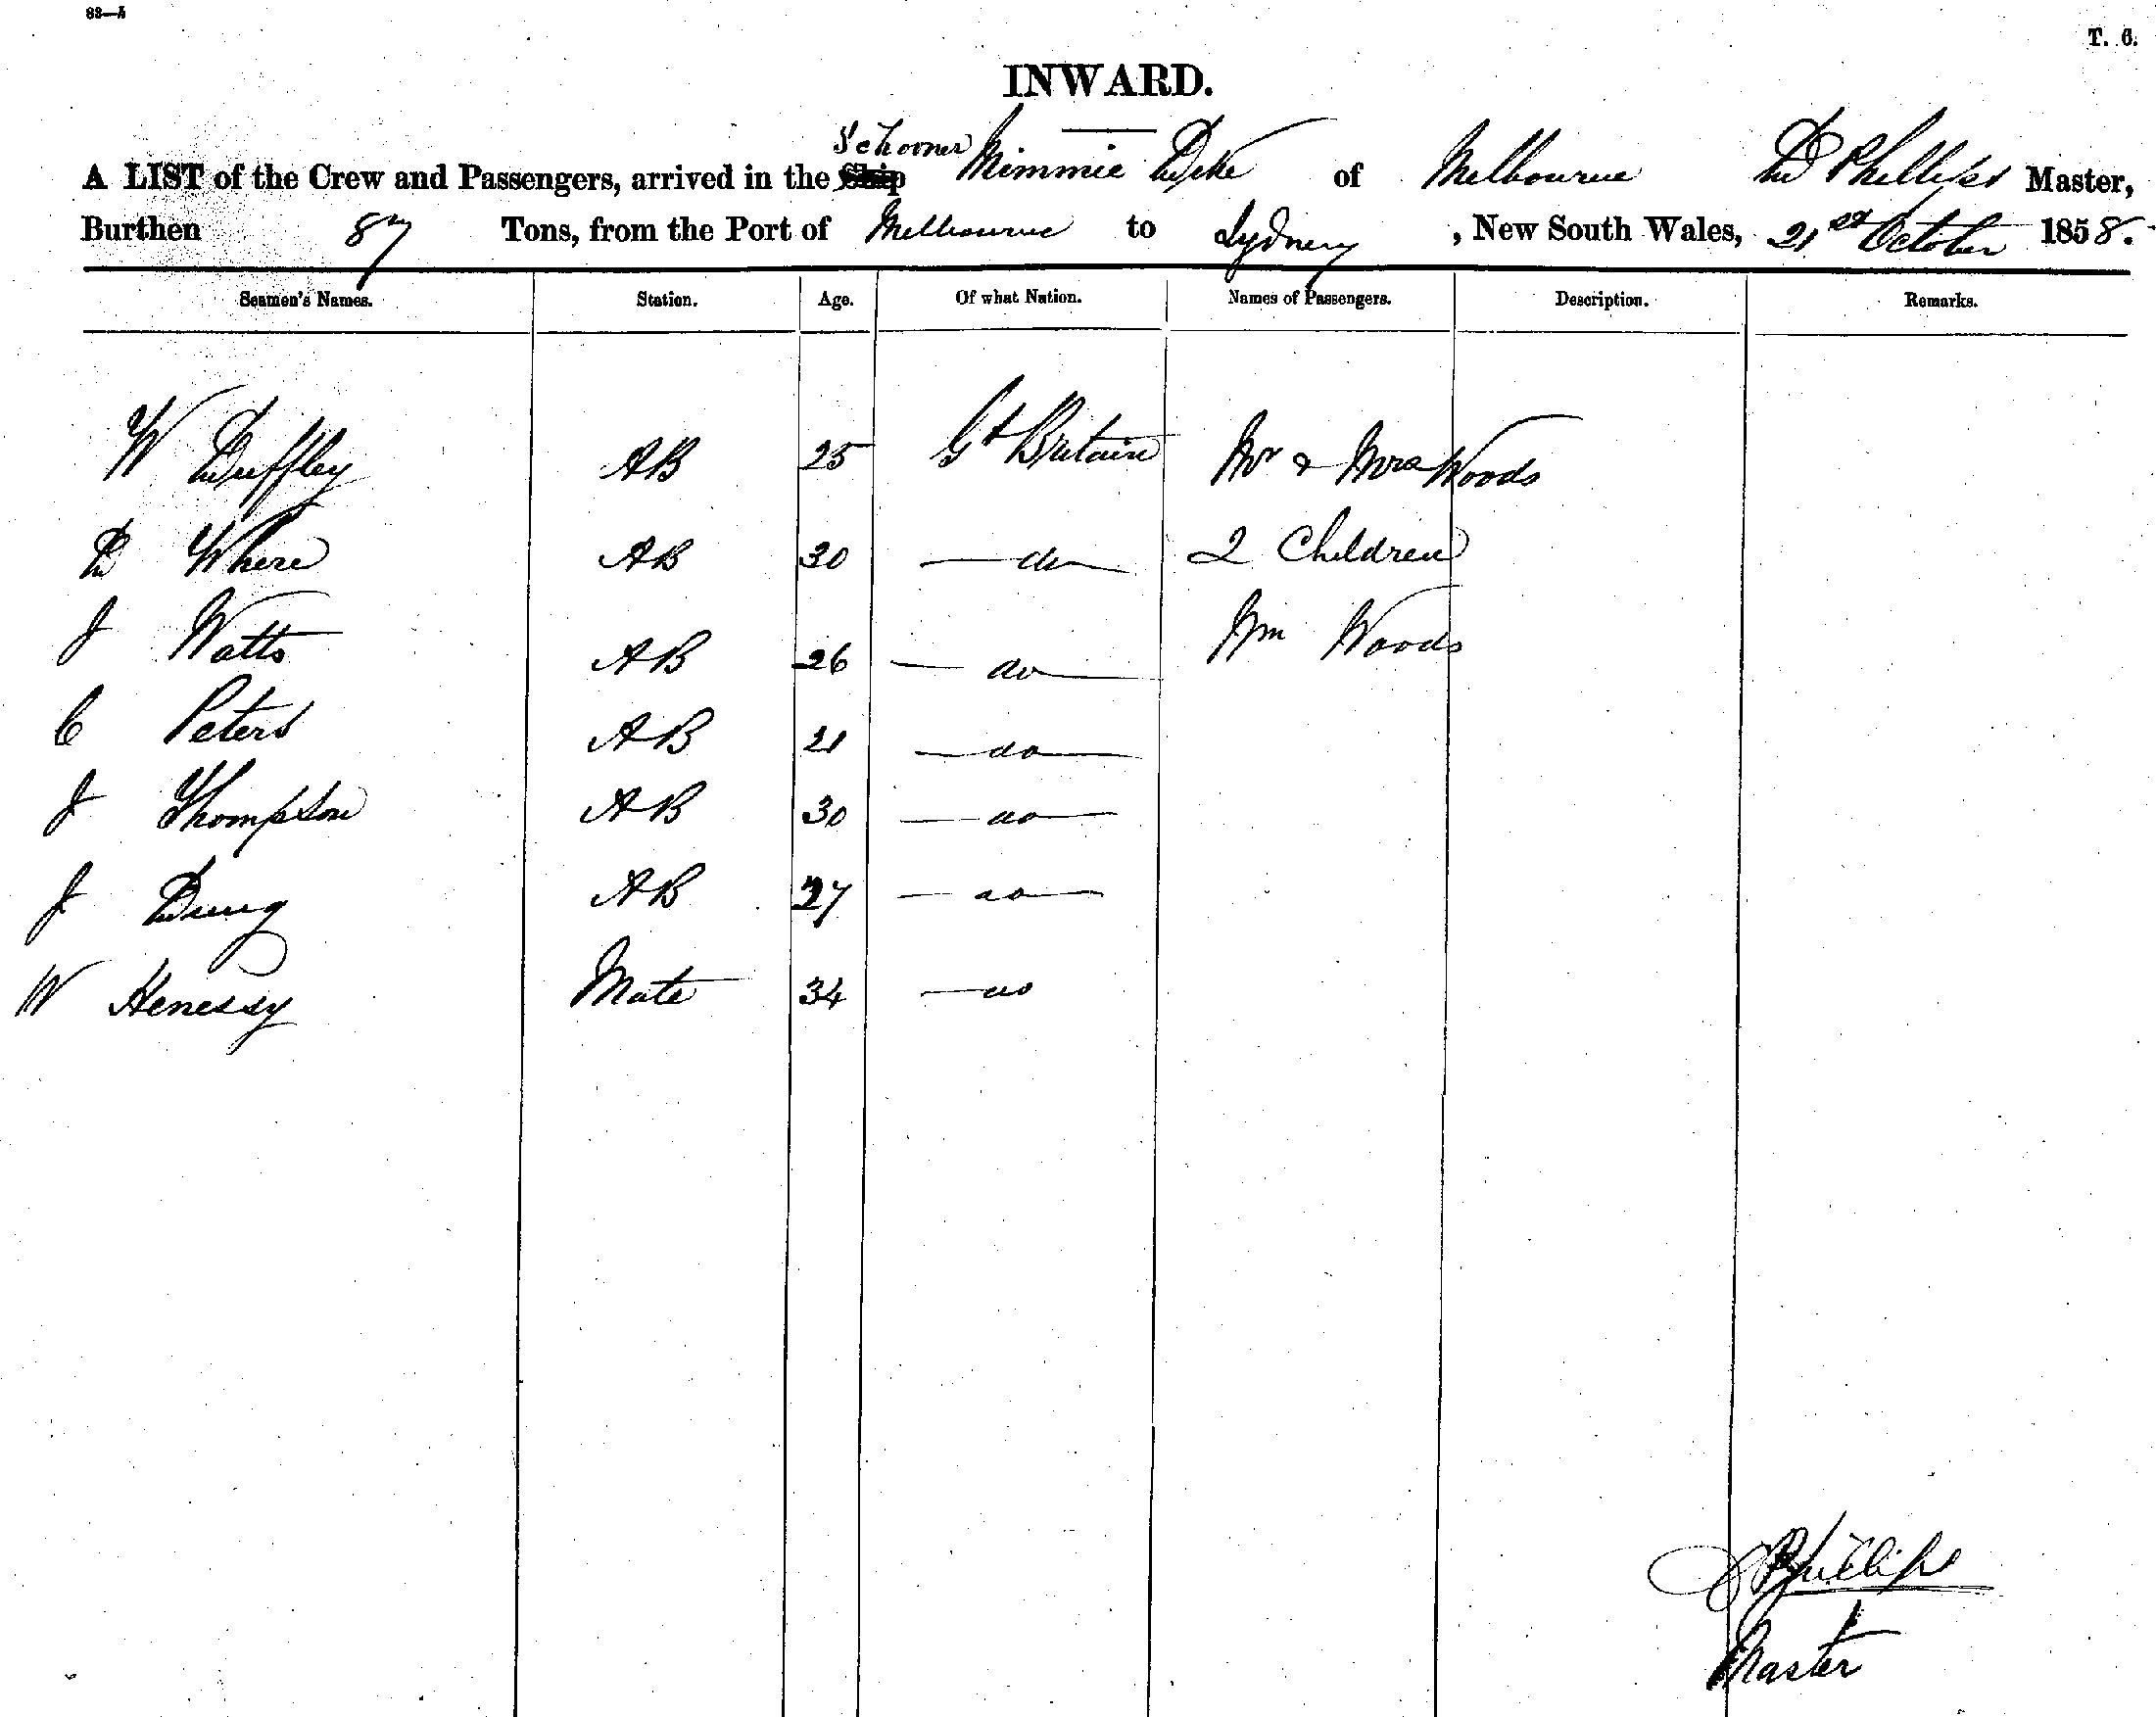 83—A
T. 6.
INWARD.
Schooner
A LIST of the Crew and Passengers, arrived in the Ship Mimmie Dyke of Melbourne D Phillips Master,
Burthen 87 Tons, from the Port of Melbourne to Sydney, New South Wales, 21st October 1858.
Seamen's Names. Station. Age. Of what Nation. Names of Passengers. Description. Remarks.
W Duffley AB 25 Gt Britain Mr & Mrs Woods
D Where AB 30 do 2 Children
J Watts AB 26 do Wm Woods
C Peters AB 21 do
J Thompson AB 30 do
J AB 27 do
W Henessy Mate 34 do
Phillips
Master